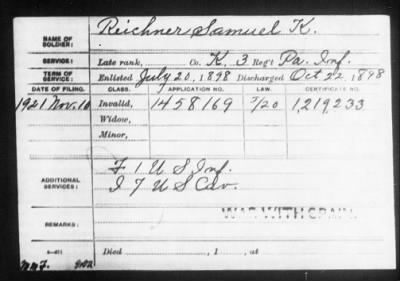 NAME OF SOLDIER: Reichner Samuel K.
SERVICE: Late rank, Co. K, 3 Reg't Pa. Inf.
TERM OF SERVICE: Enlisted July 20, 1898 Discharged Oct 22, 1898
DATE OF FILING. CLASS. APPLICATION NO. LAW. CERTIFICATE NO.
1921 Nov. 10 Invalid, 1458169 1,219,233
Widow,
Minor,
ADDITIONAL SERVICES: F 1 U S Inf.
I 7 U S Cav.
WAR WITH SPAIN.
REMARKS:
Died , 1 , at